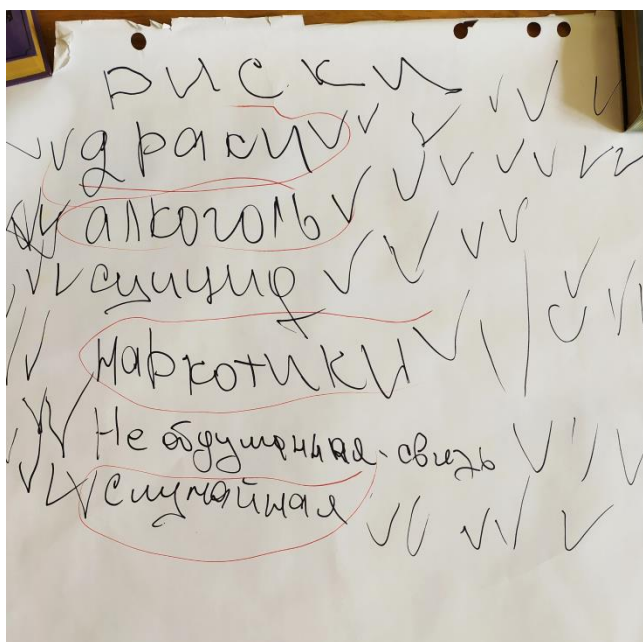 риски
драки
алкоголь
суицид
наркотики
Не обдуманная связь
случайная